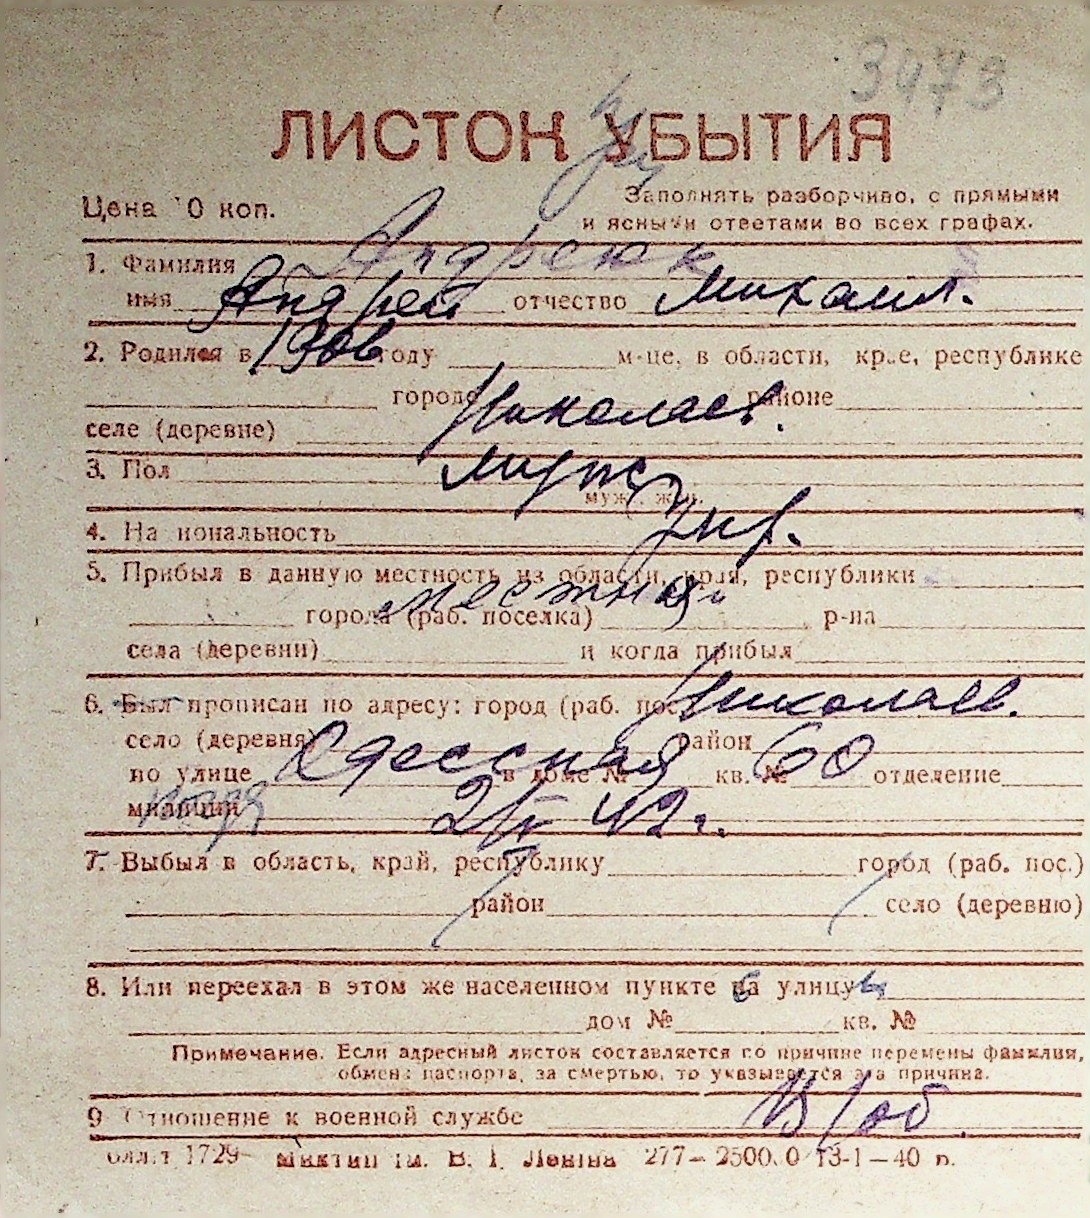 3473
ЛИСТОК УБЫТИЯ
Цена 10 коп.
Заполнять разборчиво, с прямыми
и ясными ответами во всех графах.
1. Фамилия Андреюк
имя Андрей отчество Михаил.
2. Родился в 1906 году м-це, в области, крае, республике
городе Николаев. районе
селе (деревне)
3. Пол мужс
муж. жен.
4. Национальность укр.
5. Прибыл в данную местность из области, края, республики
местная
города (раб. поселка) р-на
села (деревни) и когда прибыл
6. Был прописан по адресу: город (раб. пос. Николаев.
село (деревня) район
по улице Одесская в доме № кв. № 60 отделение
милиции 42 г.
7. Выбыл в область, край, республику город (раб. пос.)
район село (деревню)
8. Или переехал в этом же населенном пункте на улицу
дом № кв. №
Примечание. Если адресный листок составляется по причине перемены фамилии,
обмена паспорта, за смертью, то указывается эта причина.
9 Отношение к военной службе В/об.
1729 ім. В. І. Леніна 277—2500.0 13-1—40 р.